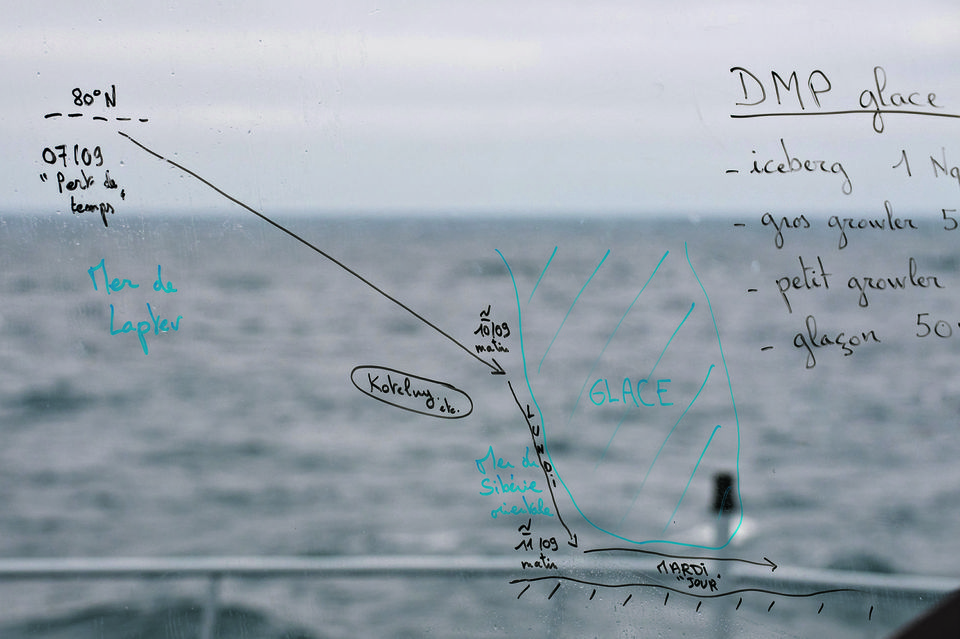 80°N
07/09
"Perte de
temps"
Mer de
Laptev
~
10/09
matin
Kotelny
etc.
LUNDI
Mer de
Sibérie
orientale
~
11/09
matin
GLACE
MARDI
"JOUR"
DMP glace
- iceberg 1 Nq
- gros growler 5
- petit growler
- glaçon 50